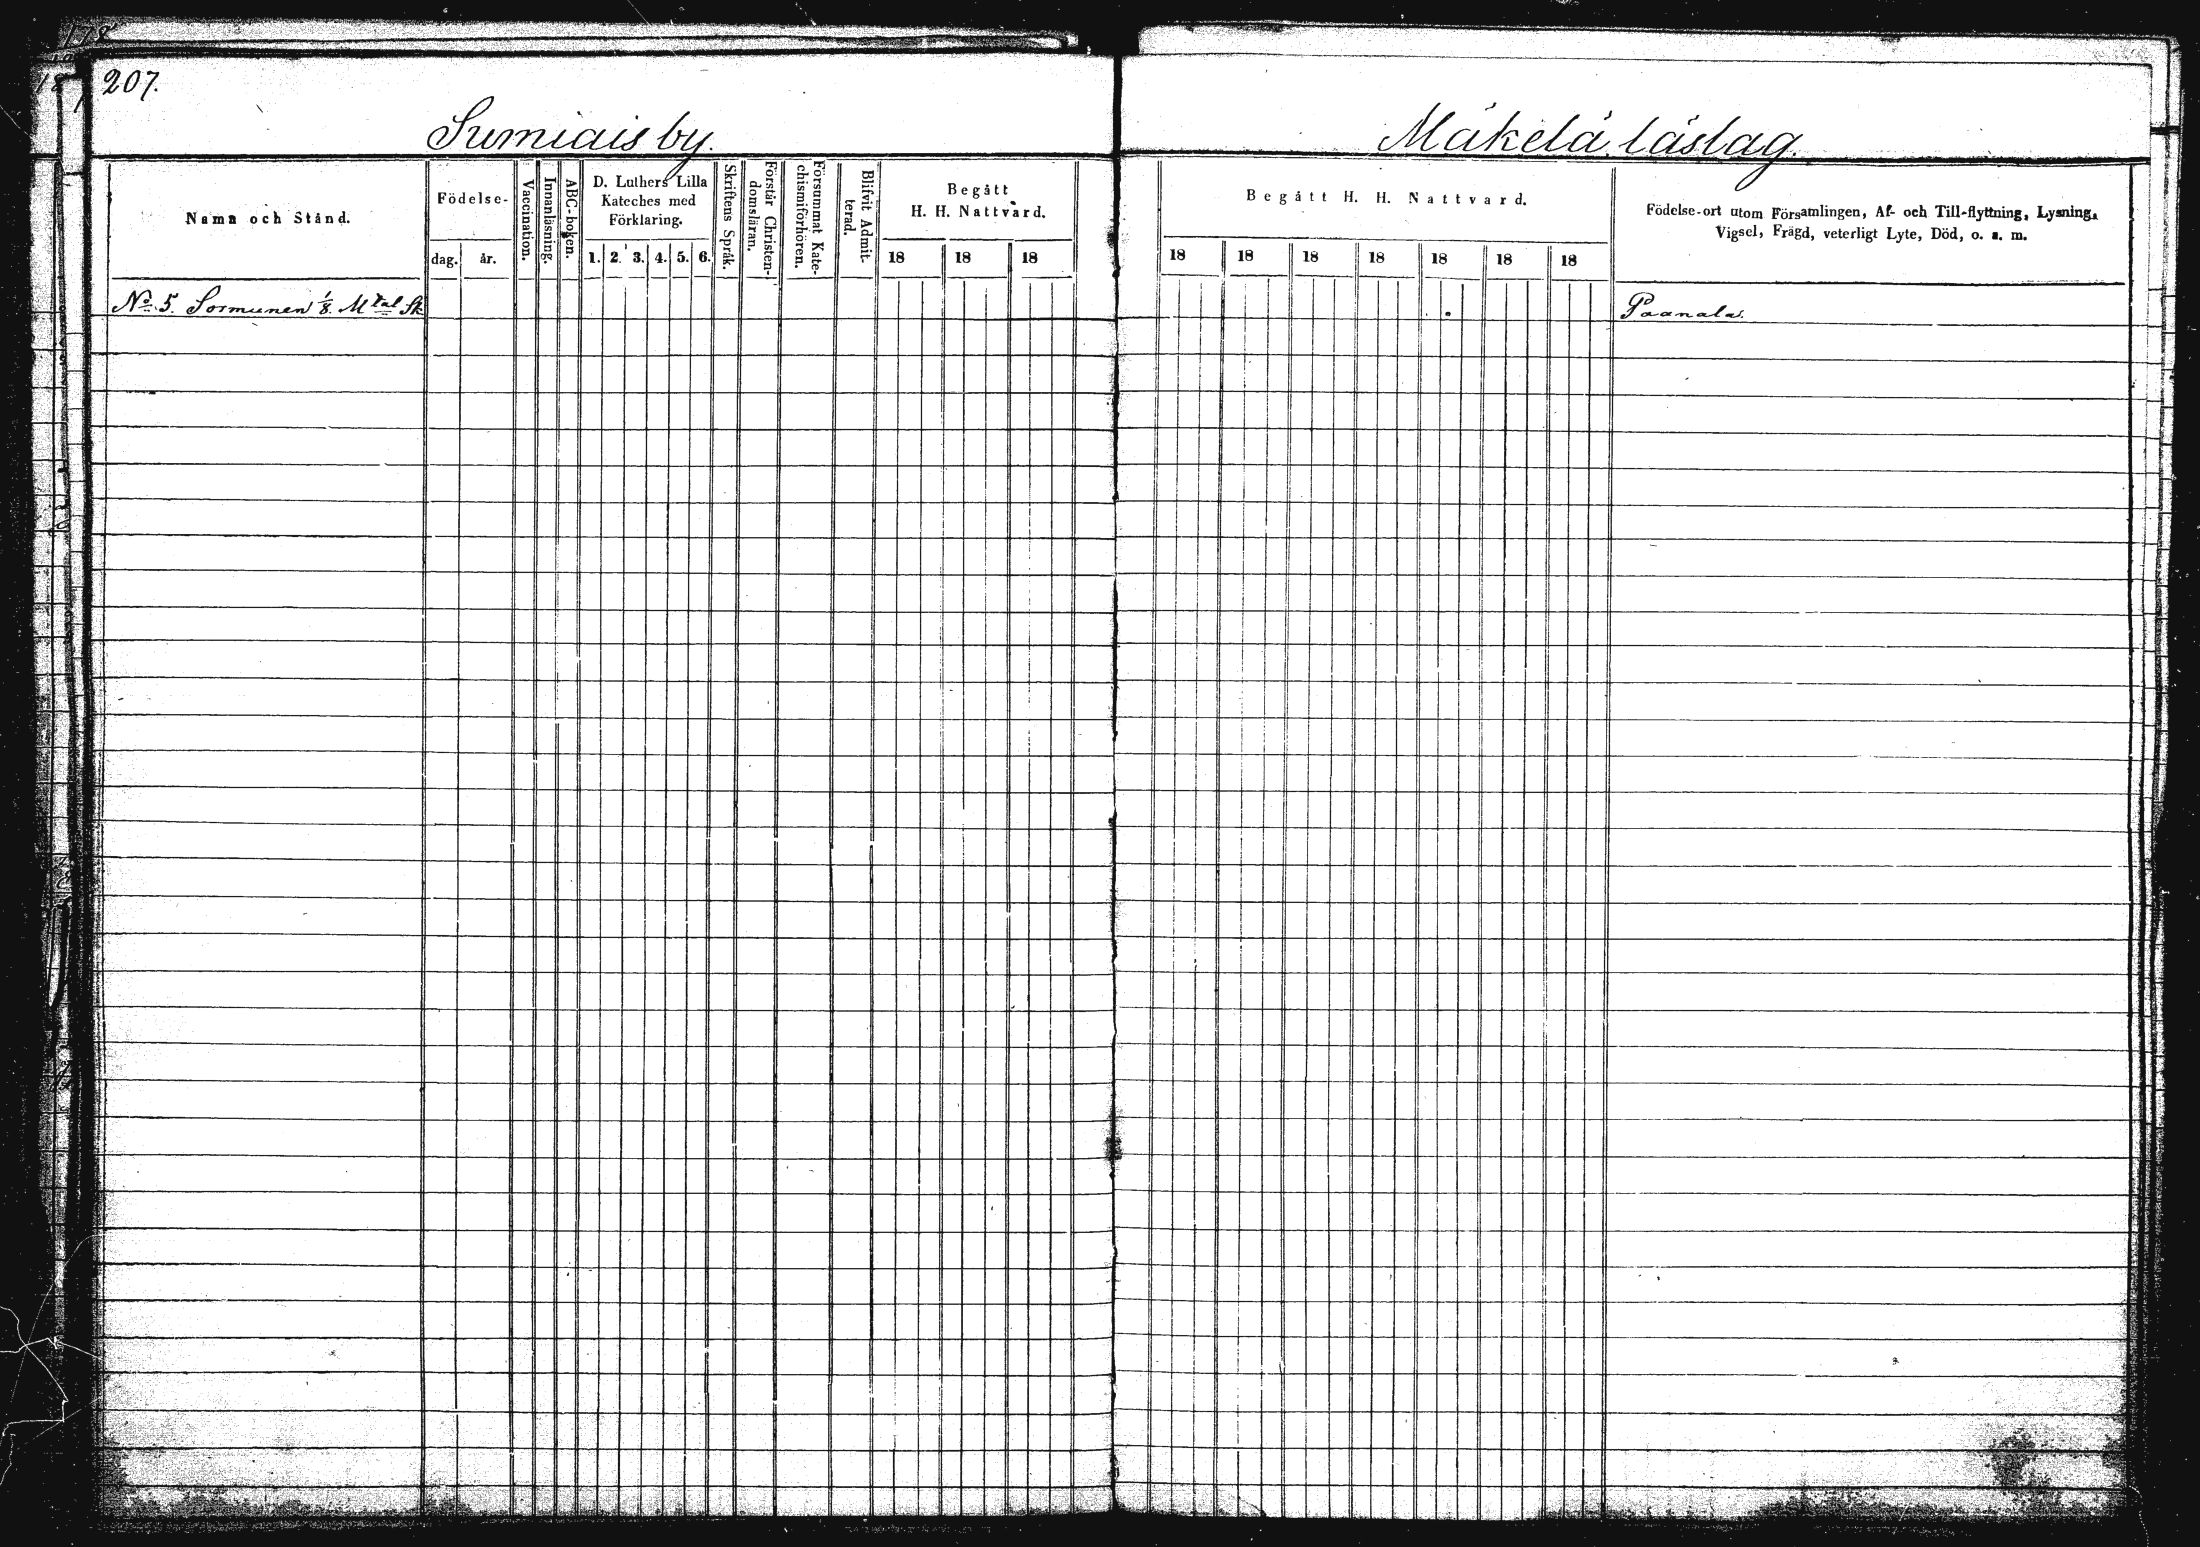 178
207.
Sumiais by.
Mäkelä läslag.
Namn och Stånd.
Födelse-
dag. år.
Vaccination.
Innanläsning.
ABC-boken.
D. Luthers Lilla
Kateches med
Förklaring.
1. 2. 3. 4. 5. 6.
Skriftens Språk.
Förstår Christen-
domsläran.
Försummat Kate-
chismiförhören.
Blifvit Admit-
terad.
Begått
H. H. Nattvard.
18 18 18
Begått H. H. Nattvard.
18 18 18 18 18 18 18
Födelse-ort utom Församlingen, Af- och Till-flyttning, Lysning,
Vigsel, Frägd, veterligt Lyte, Död, o. s. m.
No 5. Sormunen 1/8. Mtal Sk
Paanala.